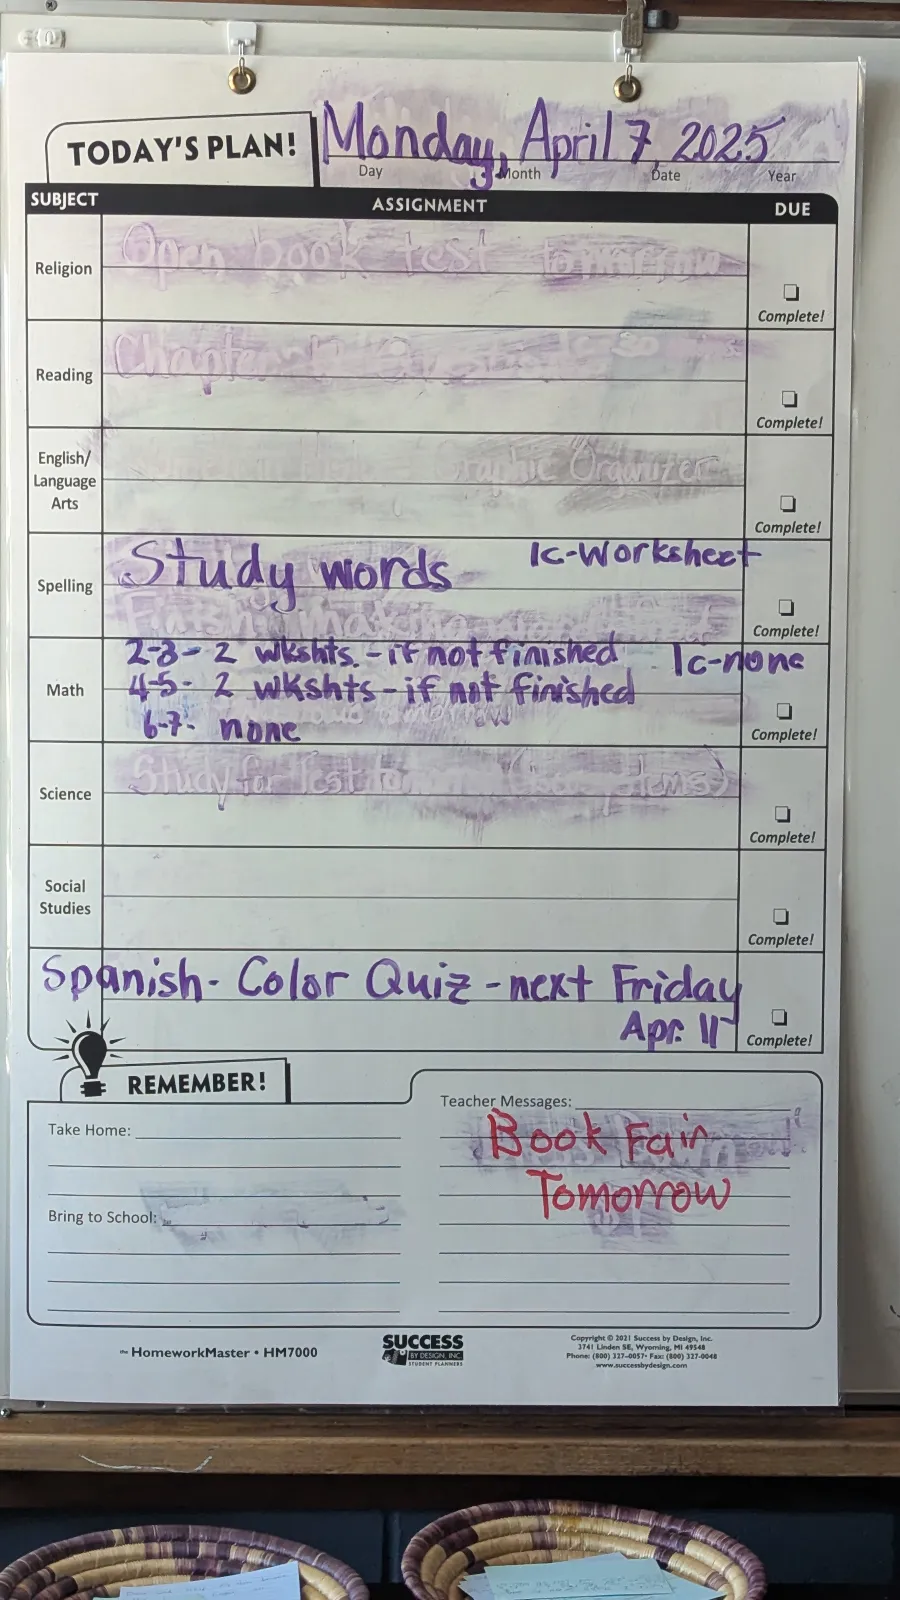 TODAY'S PLAN!
Monday, April 7, 2025
Day Month Date Year
SUBJECT ASSIGNMENT DUE
Religion
Open book test tomorrow
Complete!
Reading
Chapter
Complete!
English/
Language
Arts
Graphic Organizer
Complete!
Spelling
Study words 1c-Worksheet
Finish Making
Complete!
Math
2-3- 2 wkshts. - if not finished 1c-none
4-5- 2 wkshts - if not finished
6-7- none
Complete!
Science
Study for Test
Complete!
Social
Studies
Complete!
Spanish- Color Quiz - next Friday
Apr. 11
Complete!
REMEMBER!
Take Home:
Bring to School:
Teacher Messages:
Book Fair
Tomorrow
the HomeworkMaster • HM7000
SUCCESS
BY DESIGN, INC.
STUDENT PLANNERS
Copyright © 2021 Success by Design, Inc.
3741 Linden SE, Wyoming, MI 49548
Phone: (800) 327-0057• Fax: (800) 327-0048
www.successbydesign.com